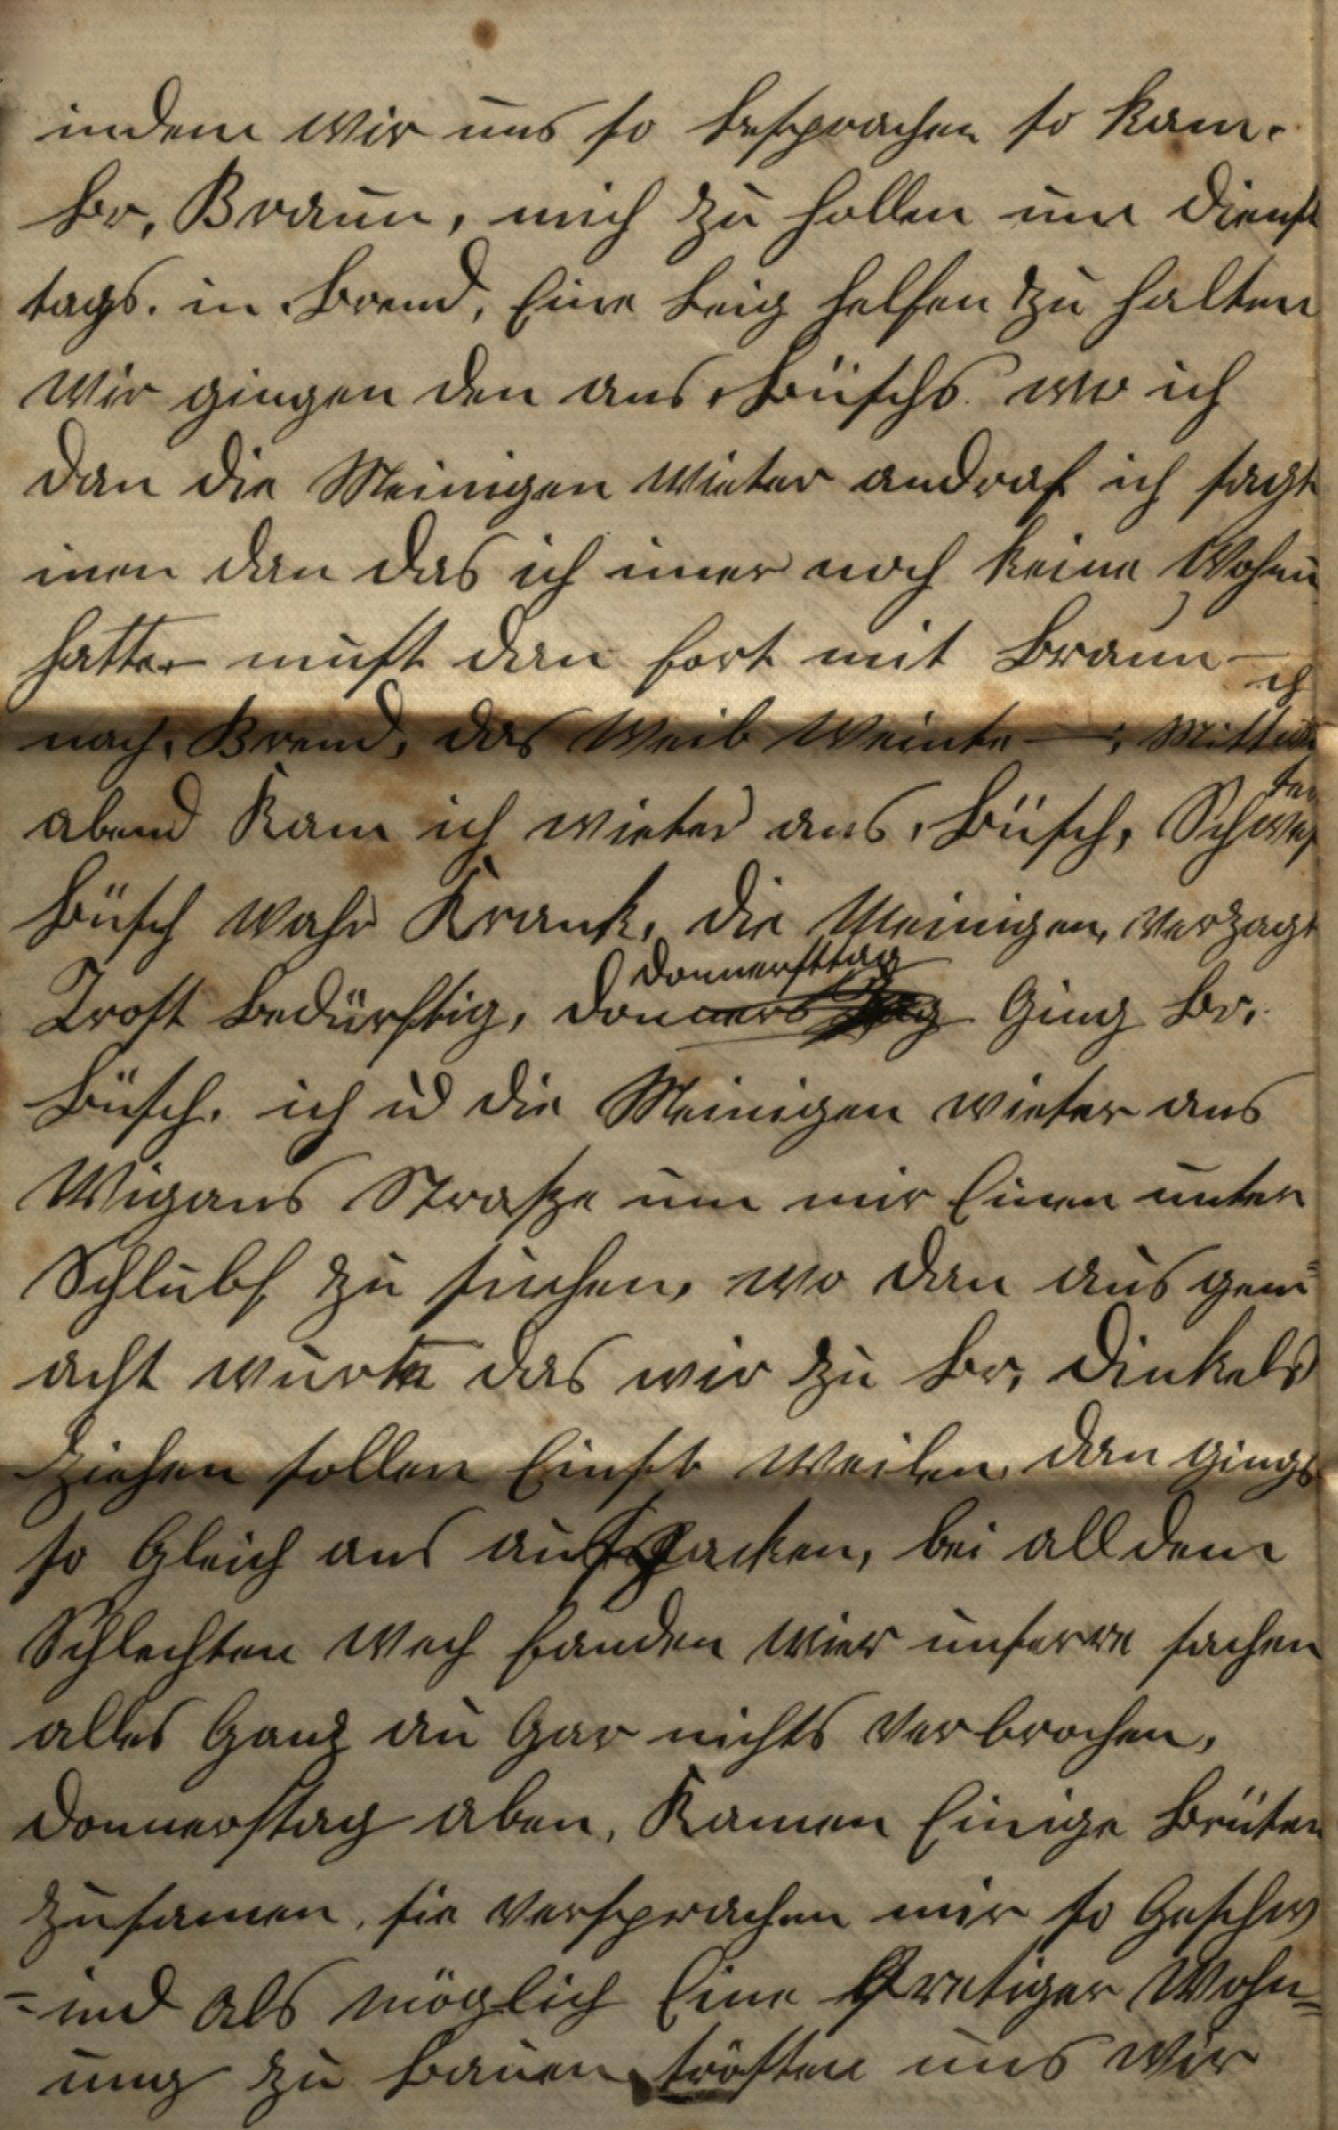 indem wir uns so besprachen so kam.
Br, Braun, mich zu hollen um Dienst
tags. in Brend, Eine Leig helfen zu halten
wir gingen den ans, Büschs wo ich
dan die Meinigen wieter andraf ich sagt
inen dan das ich imer noch keine Wohnu
hatte must dan fort mit Braun - ich
nach, Brend, das Weib Weinte -
abend Kam ich wieter ans, Büsch, Schwester
Büsch wahr Krank, die Meinigen, verzagt
Trost bedürftig, Donnersttag Ging Br,
Büsch, ich ud die Meinigen wieter ans
Wigans Straße um mir Einen unter
Schlubf zu suchen, wo dan aus gem=
acht wurte das wir zu Br, Dinkels
ziehen sollen Einst weilen, dan gings
so Gleich ans auspacken, bei all dem
Schlechten wech fanden wier unsere sachen
alles Ganz au Gar nichts verbrochen,
Donnerstag aben, Kamen Einige Brüter
zusamen, sie versprachen mir so Geschw
=ind als möglich Eine Wohn=
ung zu bauen trösten uns wir